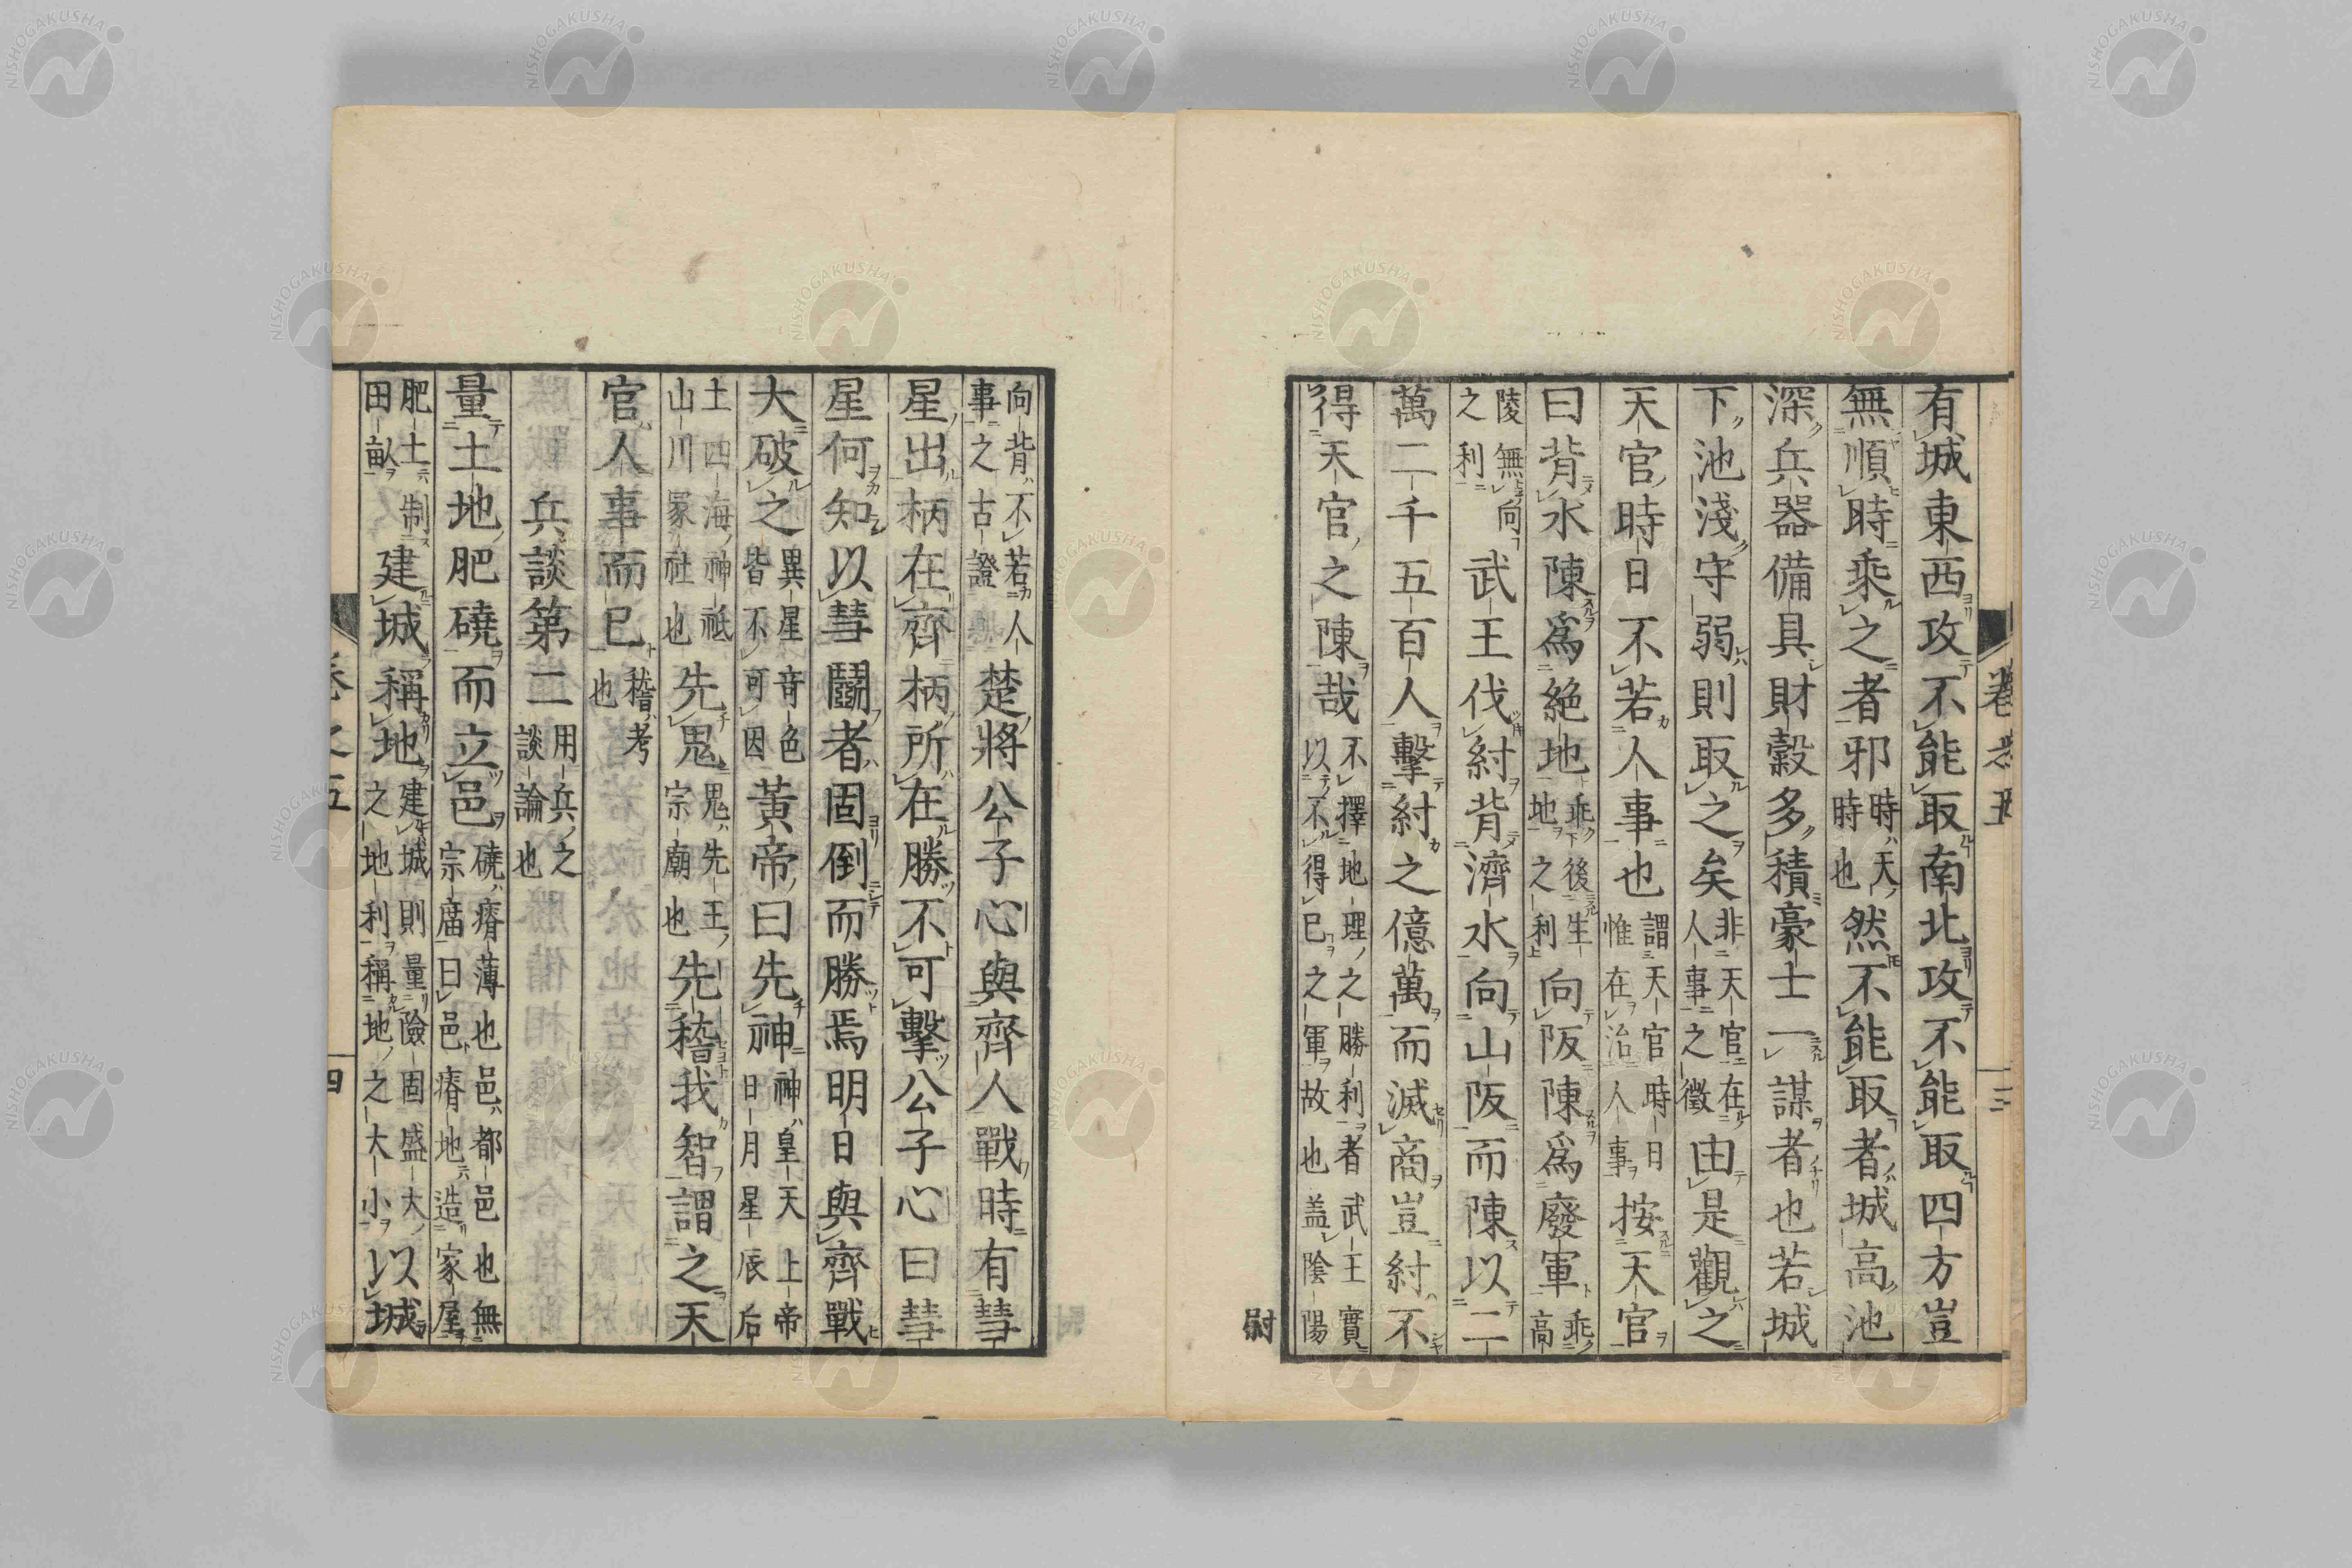 卷之五 三
有城東西攻不能取南北攻不能取四方豈
無順時乘之者邪時天時也然不能取者城高池
深兵器備具財穀多積豪士一謀者也若城
下池淺守弱則取之矣非天官在人事之徵由是觀之
天官時日不若人事也謂天官時日惟在治人事按天官
曰背水陳爲絶地乖後生地之利向阪陳爲廢軍乖高
陵無向之利武王伐紂背濟水向山阪而陳以二
萬二千五百人擊紂之億萬而滅商豈紂不
得天官之陳哉不擇地理之勝利者武王實以不得已之軍故也盖陰陽
尉
向背不若人事之古證楚將公子心與齊人戰時有彗
星出柄在齊柄所在勝不可擊公子心曰彗
星何知以彗鬭者固倒而勝焉明日與齊戰
大破之異星音色皆不可因黃帝曰先神神皇天上帝日月星辰后
土四海神祇山川冢社也先鬼鬼先王宗廟也先稽我智謂之天
官人事而已稽考也
兵談第二用兵之談論也
量土地肥磽而立邑磽瘠薄也邑都邑也無宗廟曰邑瘠地造家屋
肥土制田畝建城稱地建城則量險固盛大之地利稱地之大小以城
卷之五 四